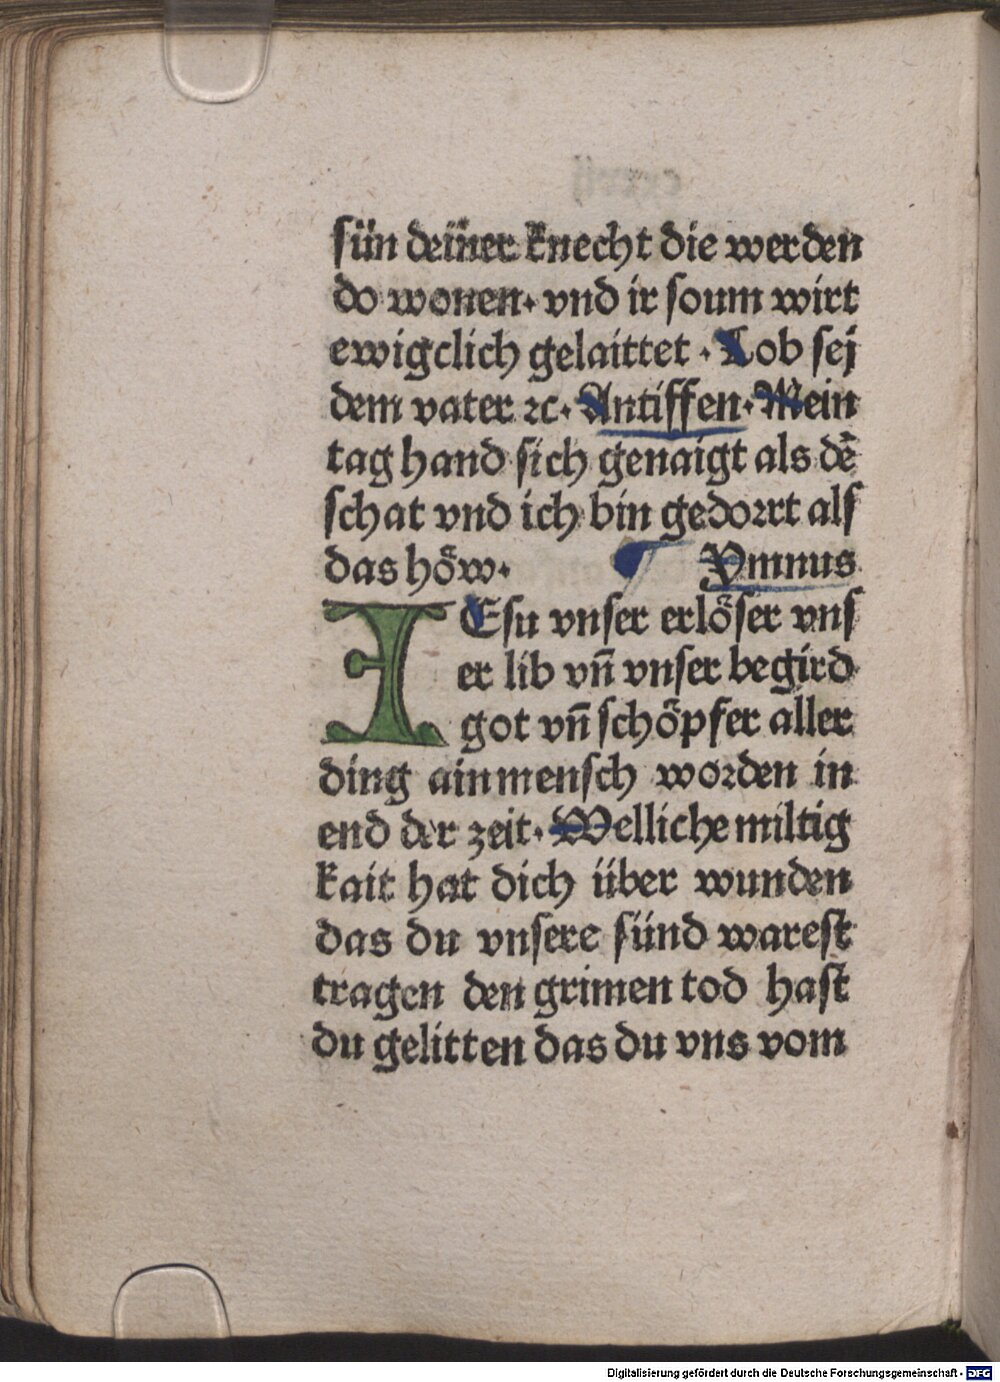 sün deiner knecht die werden
do wonen· vnd ir soum wirt
ewigclich gelaittet · Lob sej
dem vater ⁊c· Antiffen· Mein
tag hand sich genaigt als dē
schat vnd ich bin gedorrt als
das hoͤw· Ymnus
IEsu vnser erloͤser vns
er lib vn̄ vnser begird
got vn̄ schoͤpfer aller
ding ain mensch worden in
end der zeit· Welliche miltig
kait hat dich über wunden
das du vnsere sünd warest
tragen den grimen tod hast
du gelitten das du vns vom
Digitalisierung gefördert durch die Deutsche Forschungsgemeinschaft - DFG